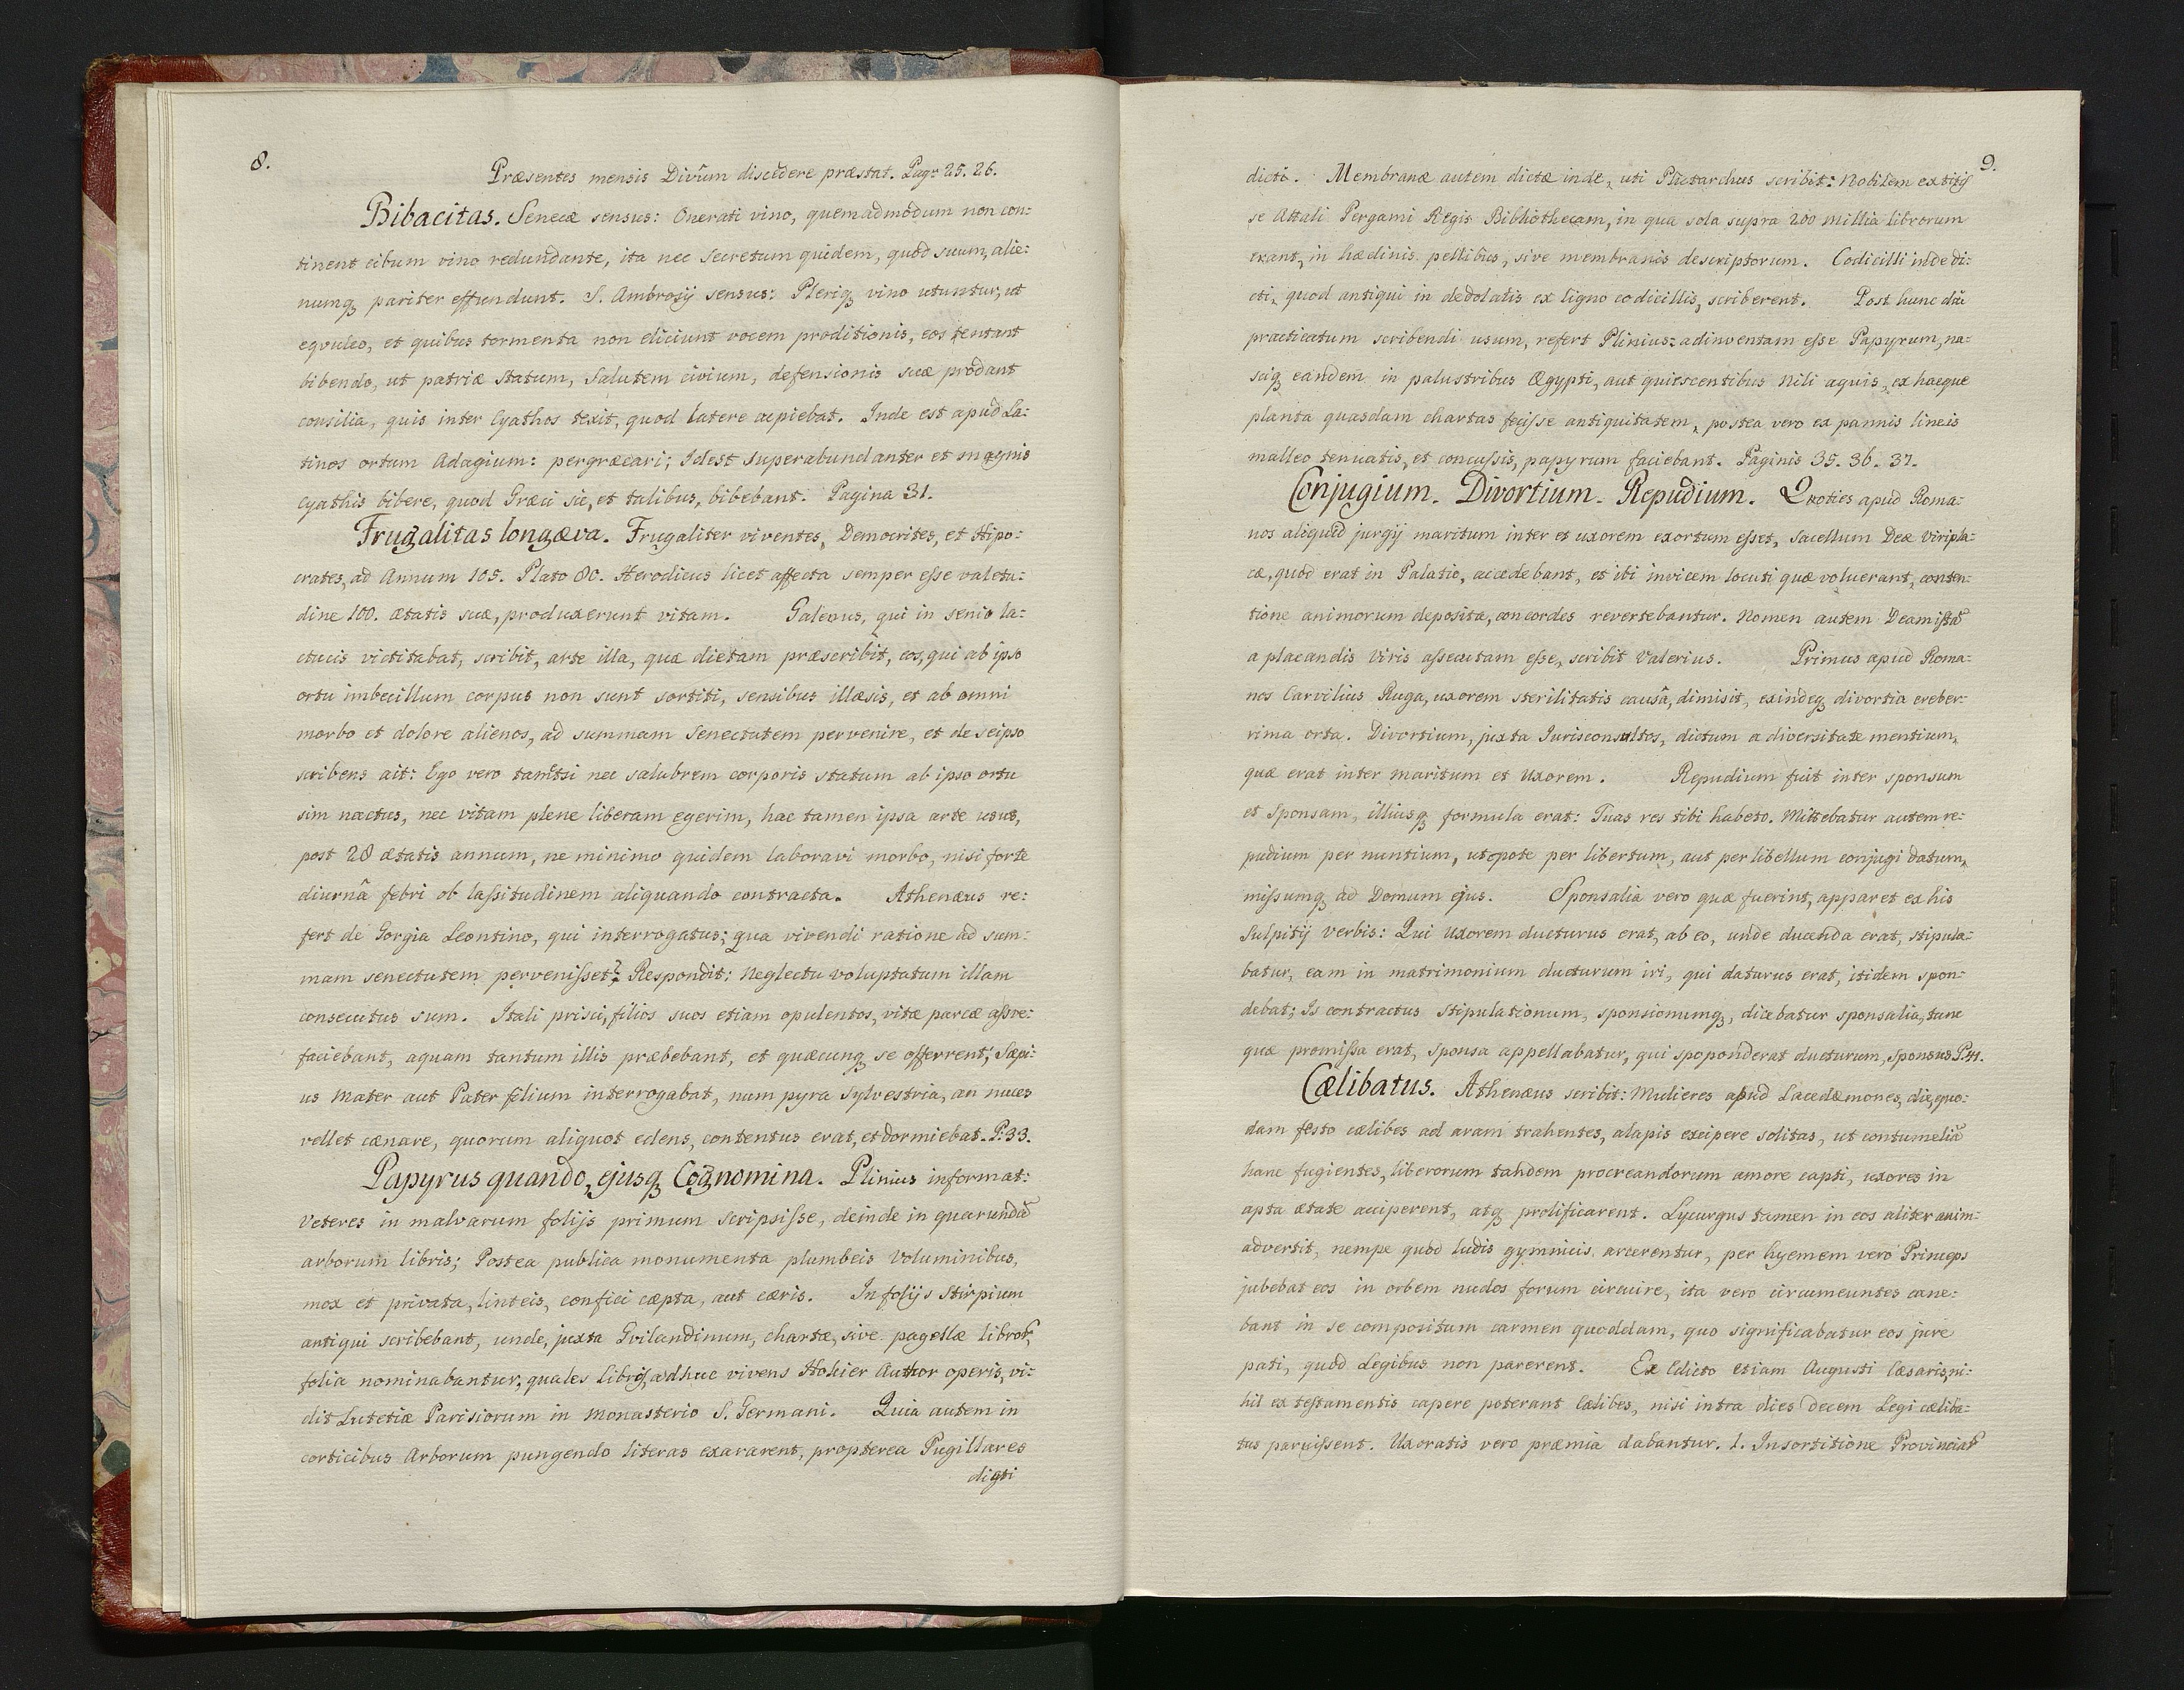 8.
Præsentes mensis Divûm discedere præstat. Pag: 25. 26.
Bibacitas. Senecæ sensus: Onerati vino, quemadmodum non con:
tinent cibum vino redundante, ita nec secretum quidem, quod suum, alie:
numq pariter effundunt. S. Ambrosij sensus: Pleriq vino utuntur, ut
eqvuleo, et quibus tormenta non eliciunt vocem proditionis, eos tentant
bibendo, ut patriæ statum, salutem civium, defensionis suæ prodant
consilia, quis inter Cyathos texit, quod latere cupiebat. Inde est apud La:
tinos ortum Adagium: pergræcari; Idest superabundanter et magnis
cyathis bibere, quod Græci sic, et talibus, bibebant. Pagina 31.
Frugalitas longæva. Frugaliter viventes, Democrites, et Hipo:
crates, ad Annum 105. Plato 80. Herodicus licet affecta semper esse valetu:
dine 100. ætatis suæ, produxerunt vitam. Galenus, qui in senio la:
ctucis victitabat, scribit, arte illa, quæ dietam præscribit, eos, qui ab ipso
ortu imbecillum corpus non sunt sortiti, sensibus illæsis, et ab omni
morbo et dolore alienos, ad summam Senectutem pervenire, et de seipso
scribens ait: Ego vero tametsi nec salubrem corporis statum ab ipso ortu
sim nactus, nec vitam plene liberam egerim, hac tamen ipsa arte usus,
post 28 ætatis annum, ne minimo quidem laboravi morbo, nisi forte
diurnâ febri ob lassitudinem aliquando contracta. Athenæus re:
fert de Gorgia Leontino, qui interrogatus; qua vivendi ratione ad sum:
mam senectutem pervenisset? Respondit: Neglectu voluptatum illam
consecutus sum. Itali prisci, filios suos etiam opulentos, vitæ parcæ assve:
faciebant, aquam tantum illis præbebant, et quæcunq se offerrent; Sæpi:
us Mater aut Pater filium interrogabat, num pyra sylvestria, an nuces
vellet cænare, quorum aliquot edens, contentus erat, et dormiebat. P. 33.
Papyrus quando, ejusq Cognomina. Plinius informat:
Veteres in malvarum folijs primum scripsisse, deinde in quarundã
arborum libris; Postea publica monumenta plumbeis Voluminibus,
mox et privata, linteis, confici cæpta, aut cæris. In folijs Stirpium
antiqui scribebant, unde, juxta Gvilandinum, chartæ, sive pagellæ libror,
folia nominabantur, quales libros, adhuc vivens Hohier Author operis, vi:
dit Lutetiæ Parisiorum in Monasterio S. Germani. Quia autem in
corticibus Arborum pungendo literas exararent, propterea Pugillares
dicti
9.
dicti. Membranæ autem dictæ inde, uti Plutarchus scribit: Nobilem extitis
se Attali Pergami Regis Bibliothecam, in qua sola supra 200 Millia librorum
erant, in hædinis pellibus, sive membranis descriptorum. Codicilli inde di:
cti, quod antiqui in dedolatis ex ligno codicillis, scriberent. Post hunc diu
practicatum scribendi usum, refert Plinius: adinventam esse Papyrum, na:
sciq eandem in palustribus Ægypti, aut quiescentibus Nili aquis, ex hacque
planta quasdam chartas fecisse antiquitatem, postea vero ex pannis lineis
malleo tenuatis, et concussis, papyrum faciebant. Paginis 35. 36. 37.
Conjugium. Divortium. Repudium. Quoties apud Roma:
nos aliquid jurgij maritum inter et uxorem exortum esset, Sacellum Deæ Viripla:
cæ, quod erat in Palatio, accedebant, et ibi invicem locuti quæ voluerant, conten:
tione animorum deposita, concordes revertebantur. Nomen autem Deam istã
a placandis Viris assecutam esse, scribit Valerius. Primus apud Roma:
nos Carvilius Ruga, uxorem sterilitatis causâ, dimisit, exindeq divortia creber:
rima orta. Divortium, juxta Jurisconsultos, dictum a diversitate mentium,
quæ erat inter maritum et Uxorem. Repudium fuit inter sponsum
et Sponsam, illiusq formula erat: Tuas res tibi habeto. Mittebatur autem re:
pudium per nuntium, utpote per libertum, aut per libellum conjugi datum,
missumq ad Domum ejus. Sponsalia vero quæ fuerint, apparet ex his
Sulpitij verbis: Qui Uxorem ducturus erat, ab eo, unde ducenda erat, stipula:
batur, eam in matrimonium ducturum iri, qui daturus erat, itidem spon:
debat; Is contractus Stipulationum, sponsionumq, dicebatur sponsalia, tunc
quæ promissa erat, Sponsa appellabatur, qui spoponderat ducturum, Sponsus P. 41.
Cælibatus. Athenæus scribit: Mulieres apud Lacedæmones, die, quo:
dam festo cælibes ad aram trahentes, alapis excipere solitas, ut contumeliã
hanc fugientes, liberorum tandem procreandorum amore capti, uxores in
apta ætate acciperent, atq prolificarent. Lycurgus tamen in eos aliter anim:
advertit, nempe quod ludis gymnicis arcerentur, per hyemem vero Princeps
jubebat eos in orbem nudos forum circuire, ita vero circumeuntes cane:
bant in se compositum carmen quoddam, quo significabatur eos jure
pati, quod Legibus non parerent. Ex Edicto etiam Augusti Cæsaris, ni:
hil ex testamentis capere poterant Cælibes, nisi intra dies decem Legi cæliba:
tus paruissent. Uxoratis vero præmia dabantur. 1. In sortitione Provinciar